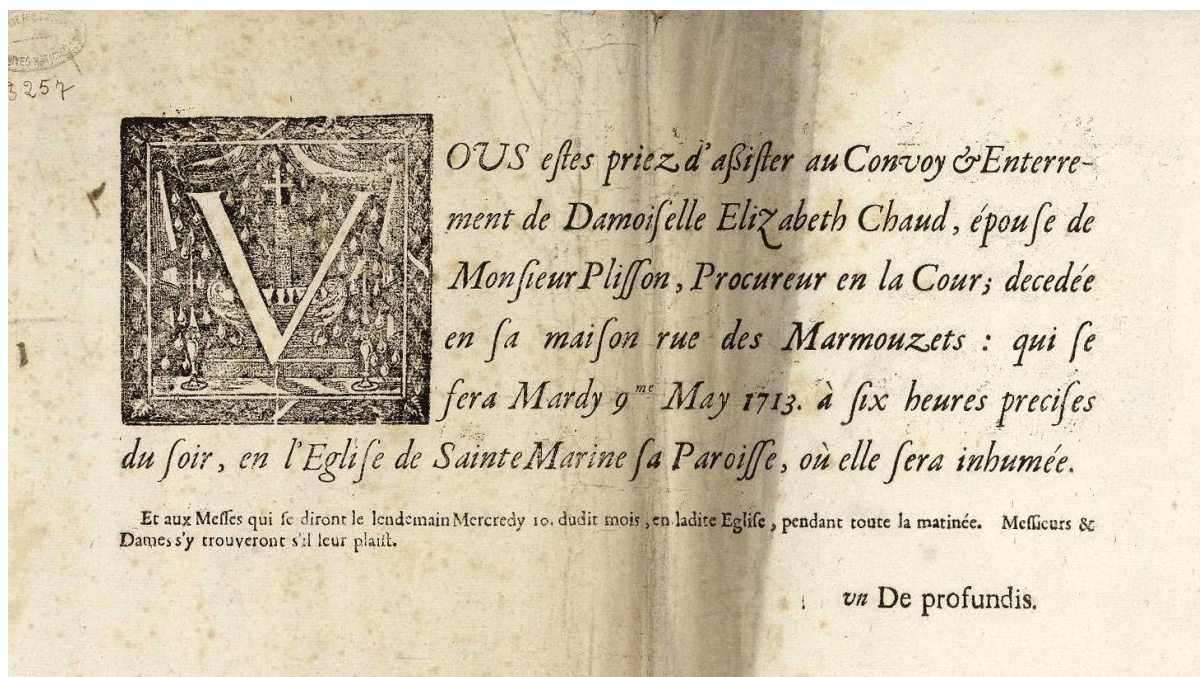 3257
VOUS estes priez d'assister au Convoy & Enterre-
ment de Damoiselle Elizabeth Chaud, épouse de
Monsieur Plisson, Procureur en la Cour; decedée
en sa maison rue des Marmouzets : qui se
fera Mardy 9.me May 1713. à six heures precises
du soir, en l'Eglise de Sainte Marine sa Paroisse, où elle sera inhumée.
Et aux Messes qui se diront le lendemain Mercredy 10. dudit mois, en ladite Eglise, pendant toute la matinée. Messieurs &
Dames s'y trouveront s'il leur plaist.
un De profundis.